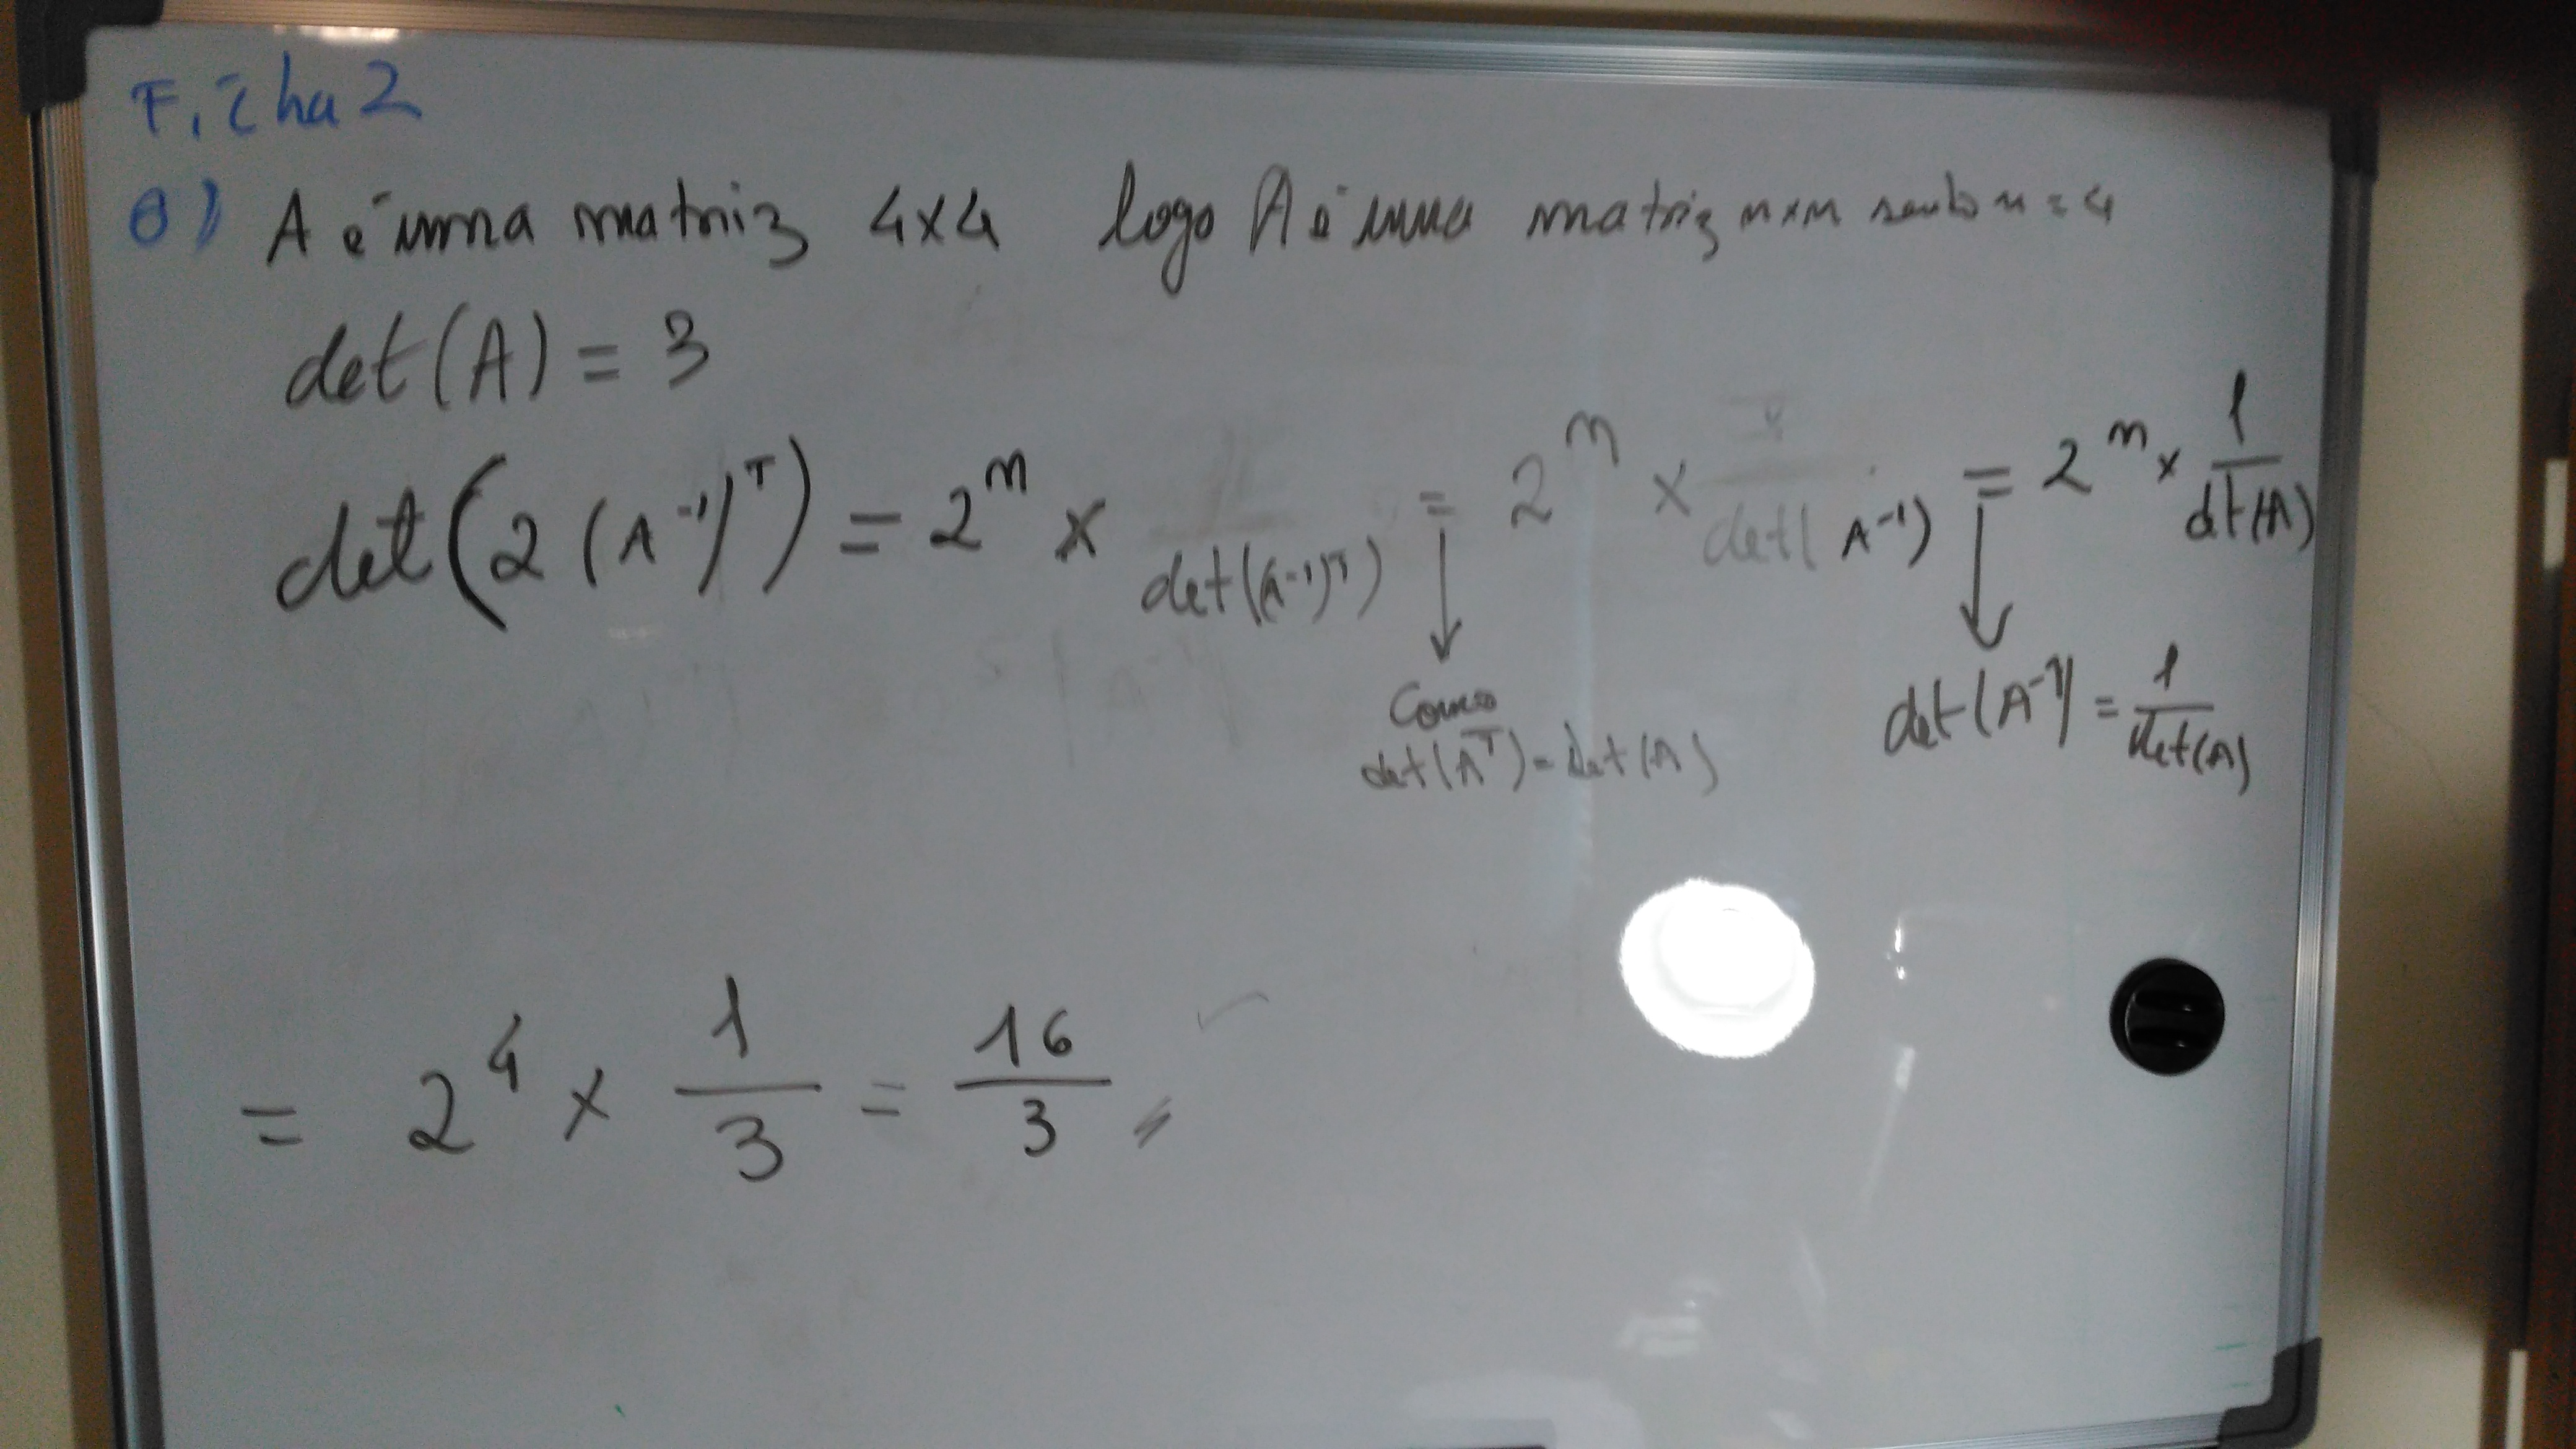 Ficha 2
8) A é uma matriz 4x4 logo A é uma matriz nxn sendo n = 4
det(A) = 3
det(2(A⁻¹)ᵀ) = 2ⁿ x det((A⁻¹)ᵀ) = 2ⁿ x det(A⁻¹) = 2ⁿ x 1/det(A)
Como
det(Aᵀ) = det(A)
det(A⁻¹) = 1/det(A)
= 2⁴ x 1/3 = 16/3 //